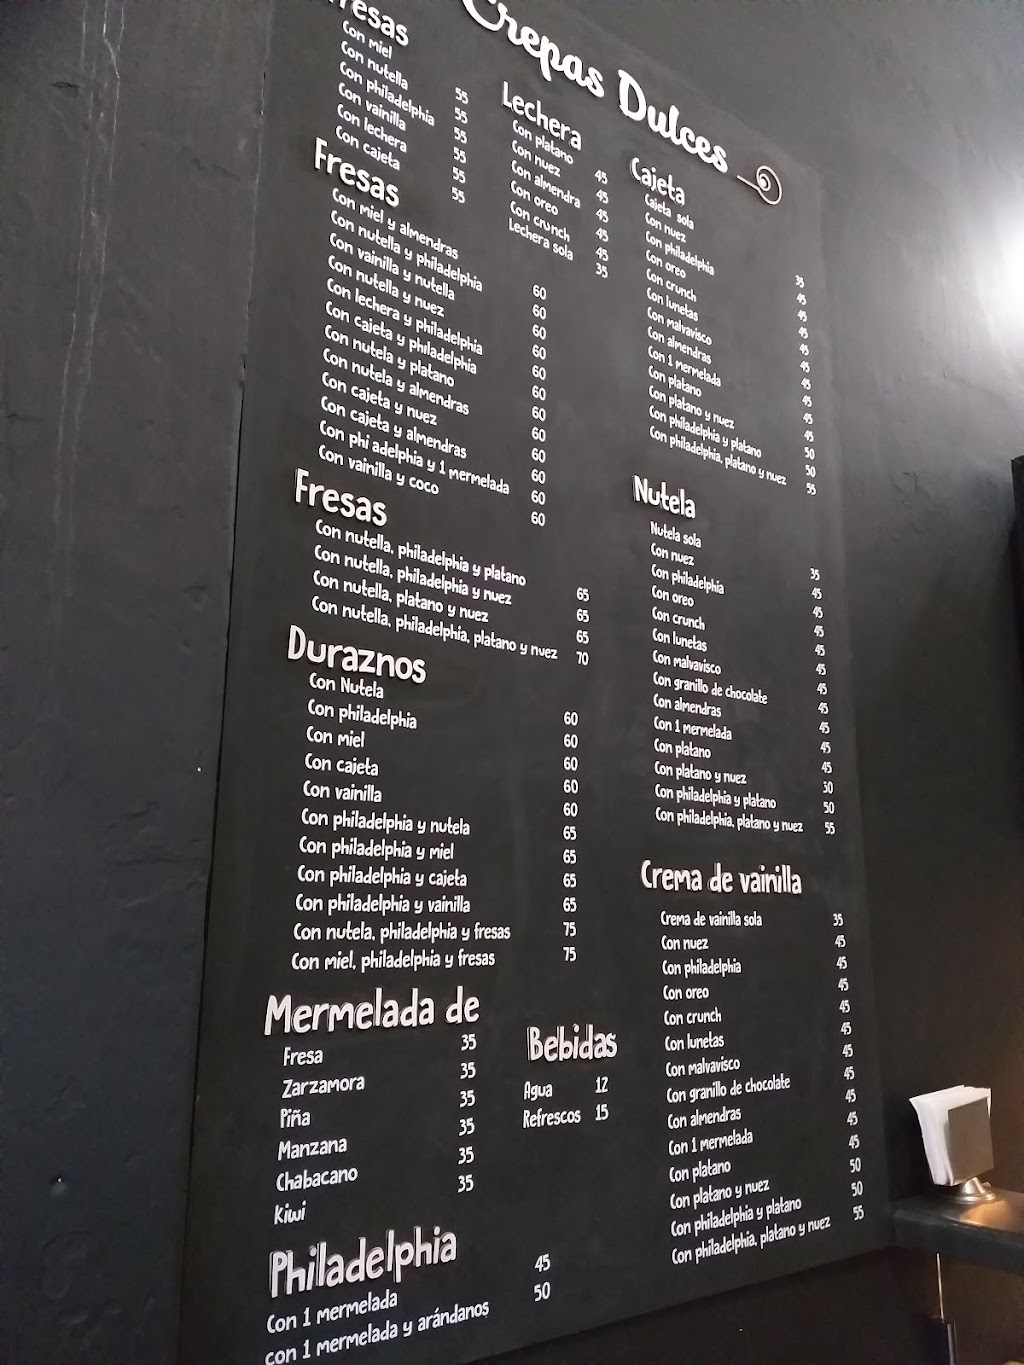 Crepas Dulces
Fresas
Con miel 55
Con nutella 55
Con philadelphia 55
Con vainilla 55
Con lechera 55
Con cajeta 55
Fresas
Con miel y almendras 60
Con nutella y philadelphia 60
Con vainilla y nutella 60
Con nutella y nuez 60
Con lechera y philadelphia 60
Con cajeta y philadelphia 60
Con nutela y platano 60
Con nutela y almendras 60
Con cajeta y nuez 60
Con cajeta y almendras 60
Con phi adelphia y 1 mermelada 60
Con vainilla y coco 60
Fresas
Con nutella, philadelphia y platano 65
Con nutella, philadelphia y nuez 65
Con nutella, platano y nuez 65
Con nutella, philadelphia, platano y nuez 70
Duraznos
Con Nutela 60
Con philadelphia 60
Con miel 60
Con cajeta 60
Con vainilla 60
Con philadelphia y nutela 65
Con philadelphia y miel 65
Con philadelphia y cajeta 65
Con philadelphia y vainilla 65
Con nutela, philadelphia y fresas 75
Con miel, philadelphia y fresas 75
Mermelada de
Fresa 35
Zarzamora 35
Piña 35
Manzana 35
Chabacano 35
Kiwi 35
Philadelphia
Con 1 mermelada 45
con 1 mermelada y arándanos 50
Lechera
Con platano 45
Con nuez 45
Con almendra 45
Con oreo 45
Con crunch 45
Lechera sola 35
Bebidas
Agua 12
Refrescos 15
Cajeta
Cajeta sola 35
Con nuez 45
Con philadelphia 45
Con oreo 45
Con crunch 45
Con lunetas 45
Con malvavisco 45
Con almendras 45
Con 1 mermelada 45
Con platano 45
Con platano y nuez 50
Con philadelphia y platano 50
Con philadelphia, platano y nuez 55
Nutela
Nutela sola 35
Con nuez 45
Con philadelphia 45
Con oreo 45
Con crunch 45
Con lunetas 45
Con malvavisco 45
Con granillo de chocolate 45
Con almendras 45
Con 1 mermelada 45
Con platano 45
Con platano y nuez 30
Con philadelphia y platano 50
Con philadelphia, platano y nuez 55
Crema de vainilla
Crema de vainilla sola 35
Con nuez 45
Con philadelphia 45
Con oreo 45
Con crunch 45
Con lunetas 45
Con malvavisco 45
Con granillo de chocolate 45
Con almendras 45
Con 1 mermelada 45
Con platano 45
Con platano y nuez 50
Con philadelphia y platano 50
Con philadelphia, platano y nuez 55